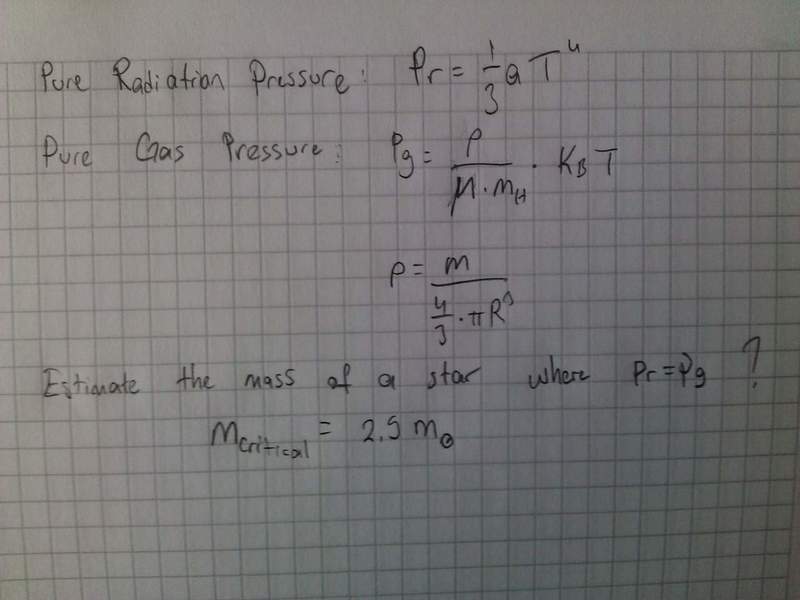 Pure Radiation Pressure: Pr = 1/3 a T⁴
Pure Gas Pressure: Pg = ρ / (μ · mH) · KB T
ρ = m / (4/3 · πR³)
Estimate the mass of a star where Pr = Pg ?
Mcritical = 2.5 m⊙